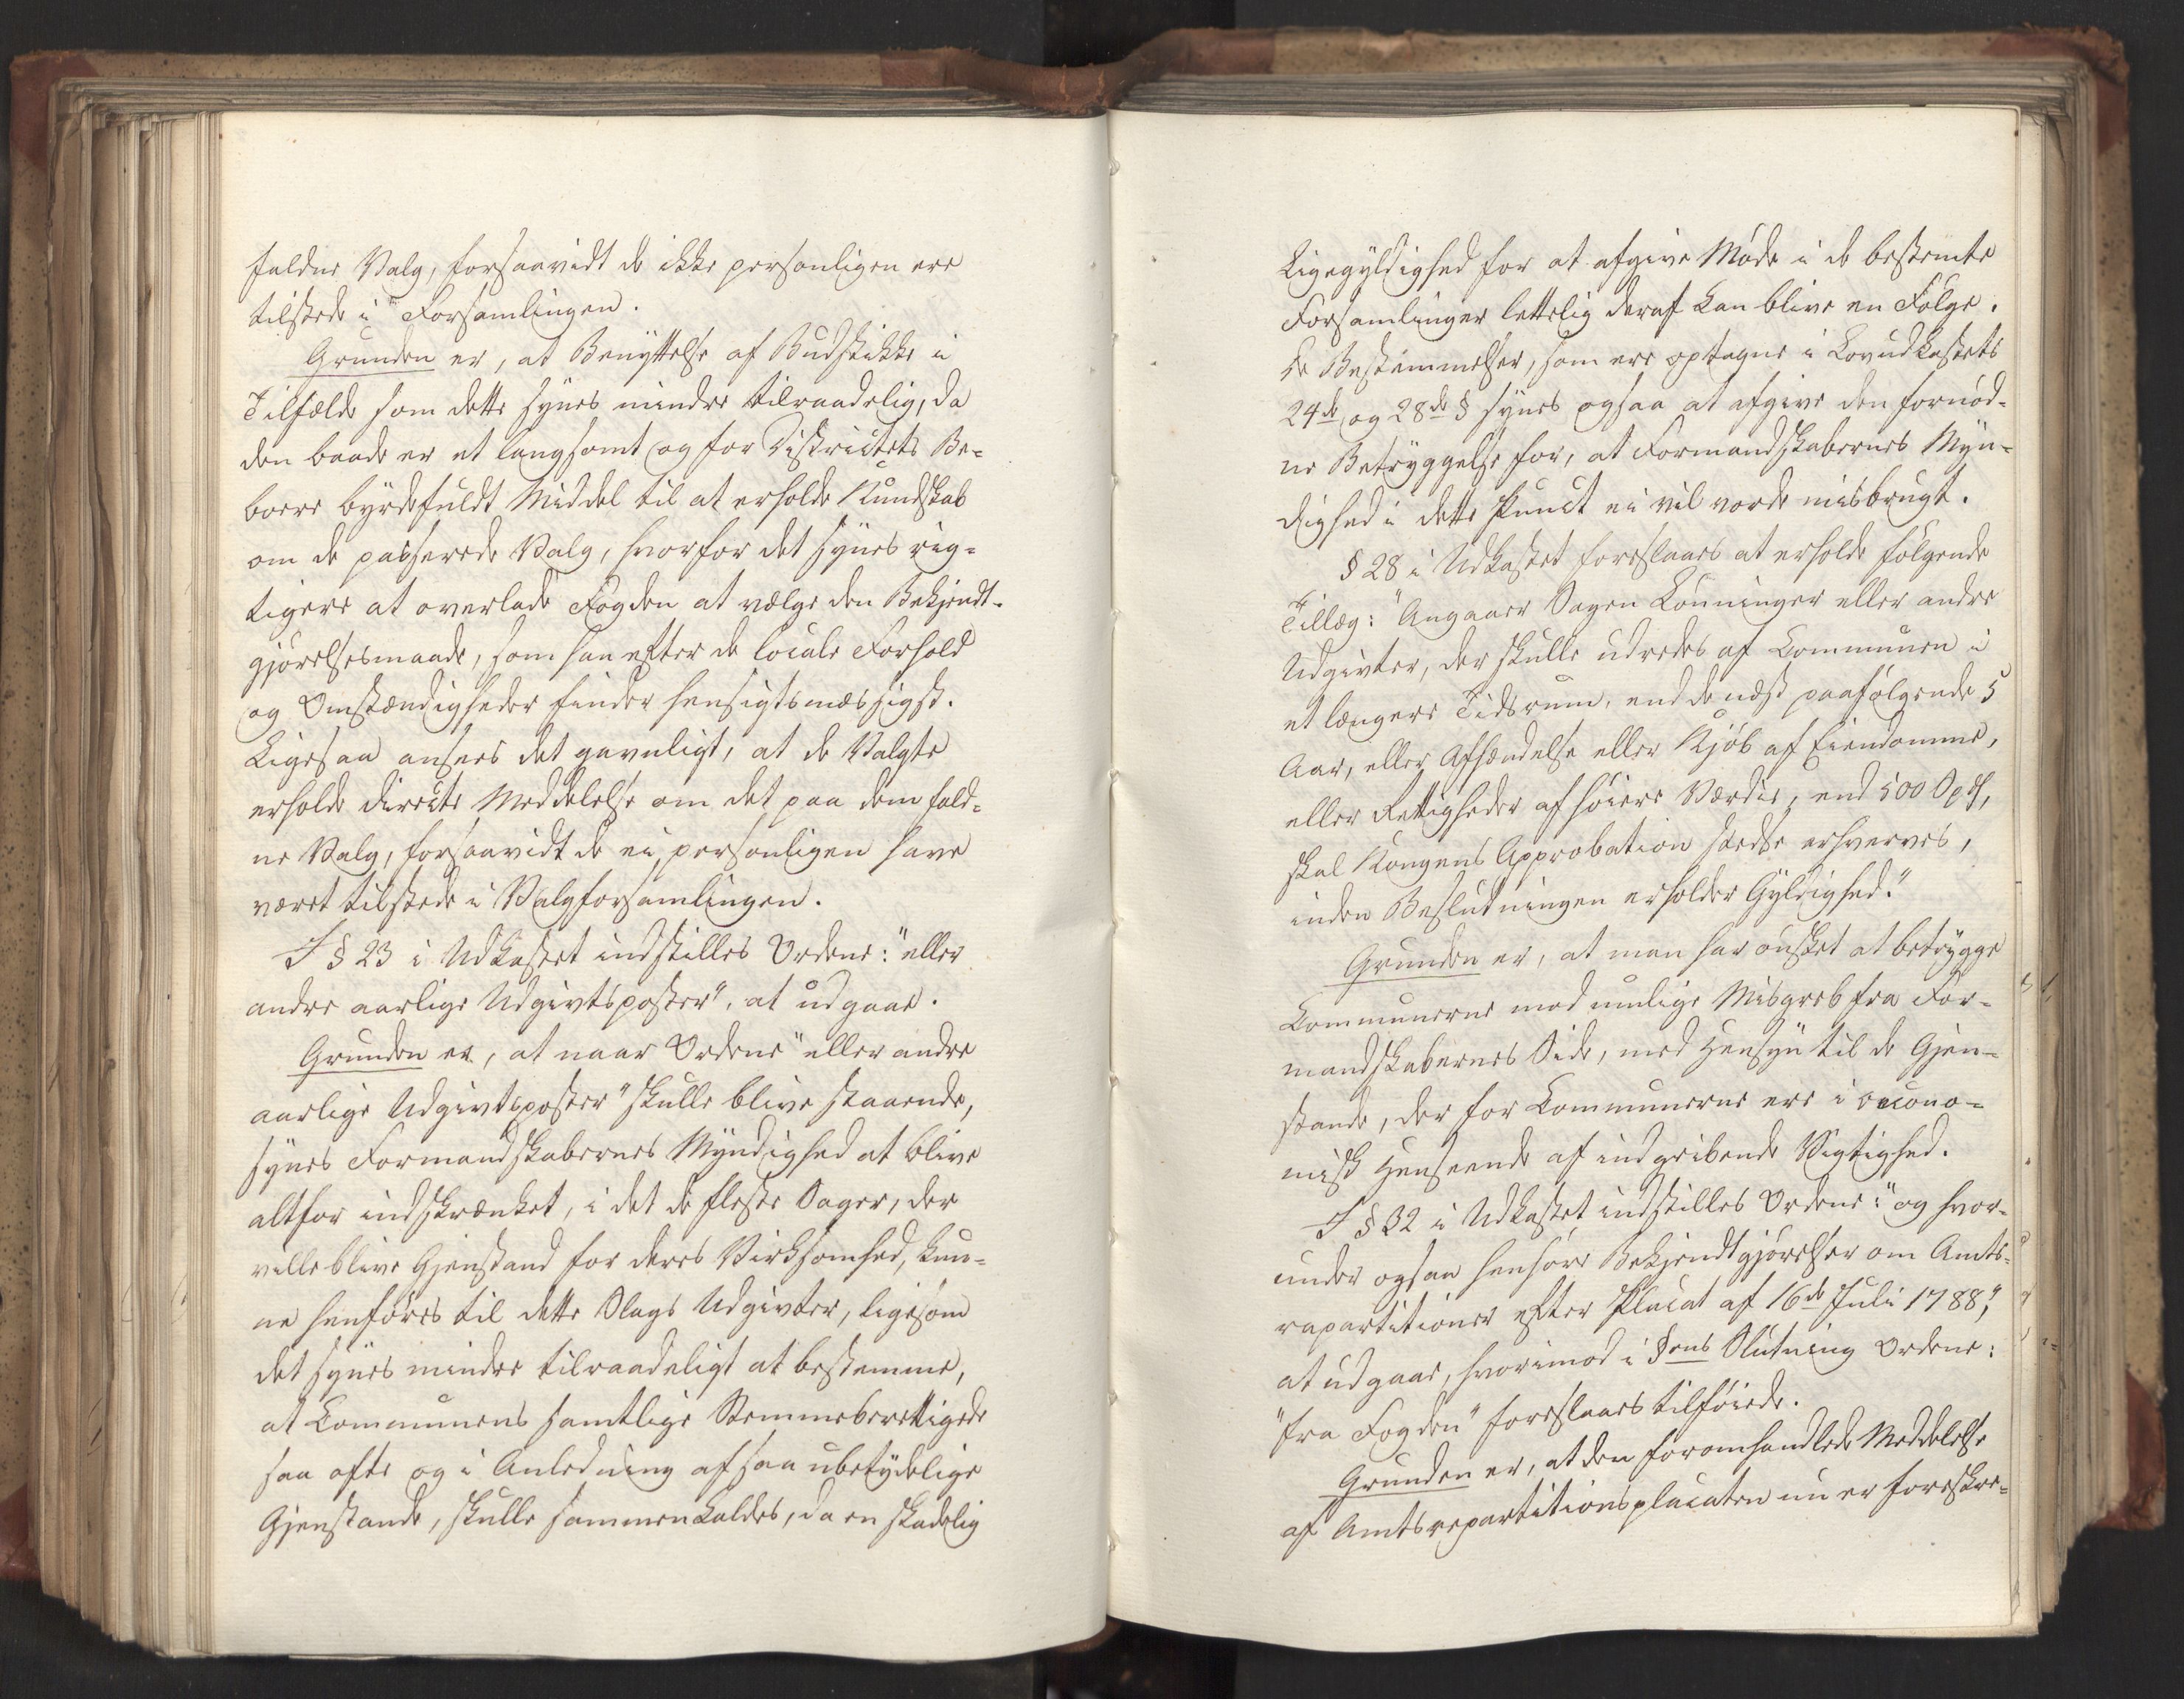 faldne Valg, forsaavidt de ikke personligen ere
tilstede i Forsamlingen.
Grunden er, at Benyttelse af Budstikke i
Tilfælde som dette synes mindre tilraadelig, da
den baade er et langsomt og for Districtets Be-
boere byrdefuldt Middel til at erholde Kundskab
om de passerede Valg, hvorfor det synes rig-
tigere at overlade Fogden at vælge den Bekjendt-
gjørelsesmaade, som han efter de locale Forhold
og Omstændigheder finder hensigtsmæssigst.
Ligesaa ansees det gavnligt, at de Valgte
erholde directe Meddelelse om det paa dem fald-
ne Valg, forsaavidt de ei personligen have
været tilstede i Valgforsamlingen.
I § 23 i Udkastet indstilles Ordene: "eller
andre aarlige Udgivtsposter", at udgaae.
Grunden er, at naar Ordene "eller andre
aarlige Udgivtsposter" skulle blive staaende,
synes Formandskabernes Myndighed at blive
altfor indskrænket, i det de fleste Sager, der
ville blive Gjenstand for deres Virksomhed, kun-
ne henføres til dette Slags Udgivter, ligesom
det synes mindre tilraadeligt at bestemme,
at Communens samtlige Stemmeberettigede
saa ofte og i Anledning af saa ubetydelige
Gjenstande, skulle sammenkaldes, da en skadelig
Ligegyldighed for at afgive Møde i de bestemte
Forsamlinger lettelig deraf kan blive en Følge.
De Bestemmelser, som ere optagne i Lovudkastets
24de og 28de § synes ogsaa at afgive den fornød-
ne Betryggelse for, at Formandskabernes Myn-
dighed i dette Punct ei vil vorde misbrugt.
§ 28 i Udkastet foreslaaes at erholde følgende
Tillæg: "Angaaer Sagen Lønninger eller andre
Udgivter, der skulle udredes af Communen i
et længere Tidsrum, end de næst paafølgende 5
Aar, eller Afhændelse eller Kjøb af Eiendomme,
eller Rettigheder af høiere Værdie, end 500 Spd,
skal Kongens Approbation stedse erhverves,
inden Beslutningen erholder Gyldighed."
Grunden er, at man har ønsket at betrygge
Communerne mod mulige Misgreb fra For-
mandskabernes Side, med Hensyn til de Gjen-
stande, der for Communerne ere i oecono-
misk Henseende af indgribende Vigtighed.
I § 32 i Udkastet indstilles Ordene: "og hvor-
under ogsaa henhøre Bekjendtgjørelser om Amts-
repartitioner efter Placat af 16de Juli 1788,"
at udgaae, hvorimod i §ens Slutning Ordene:
"fra Fogden" foreslaaes tilføiede.
Grunden er, at den foromhandlede Meddelelse
af Amtsrepartitionsplacaten nu er foreskre-